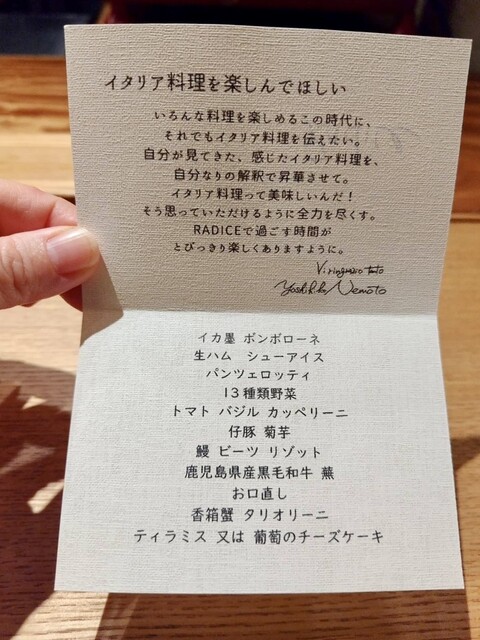 イタリア料理を楽しんでほしい
いろんな料理を楽しめるこの時代に、
それでもイタリア料理を伝えたい。
自分が見てきた、感じたイタリア料理を、
自分なりの解釈で昇華させて。
イタリア料理って美味しいんだ！
そう思っていただけるように全力を尽くす。
RADICEで過ごす時間が
とびっきり楽しくありますように。
Vi ringrazio tanto
Yoshihiko Nemoto
イカ墨 ボンボローネ
生ハム シューアイス
パンツェロッティ
13種類野菜
トマト バジル カッペリーニ
仔豚 菊芋
鰻 ビーツ リゾット
鹿児島県産黒毛和牛 蕪
お口直し
香箱蟹 タリオリーニ
ティラミス 又は 葡萄のチーズケーキ